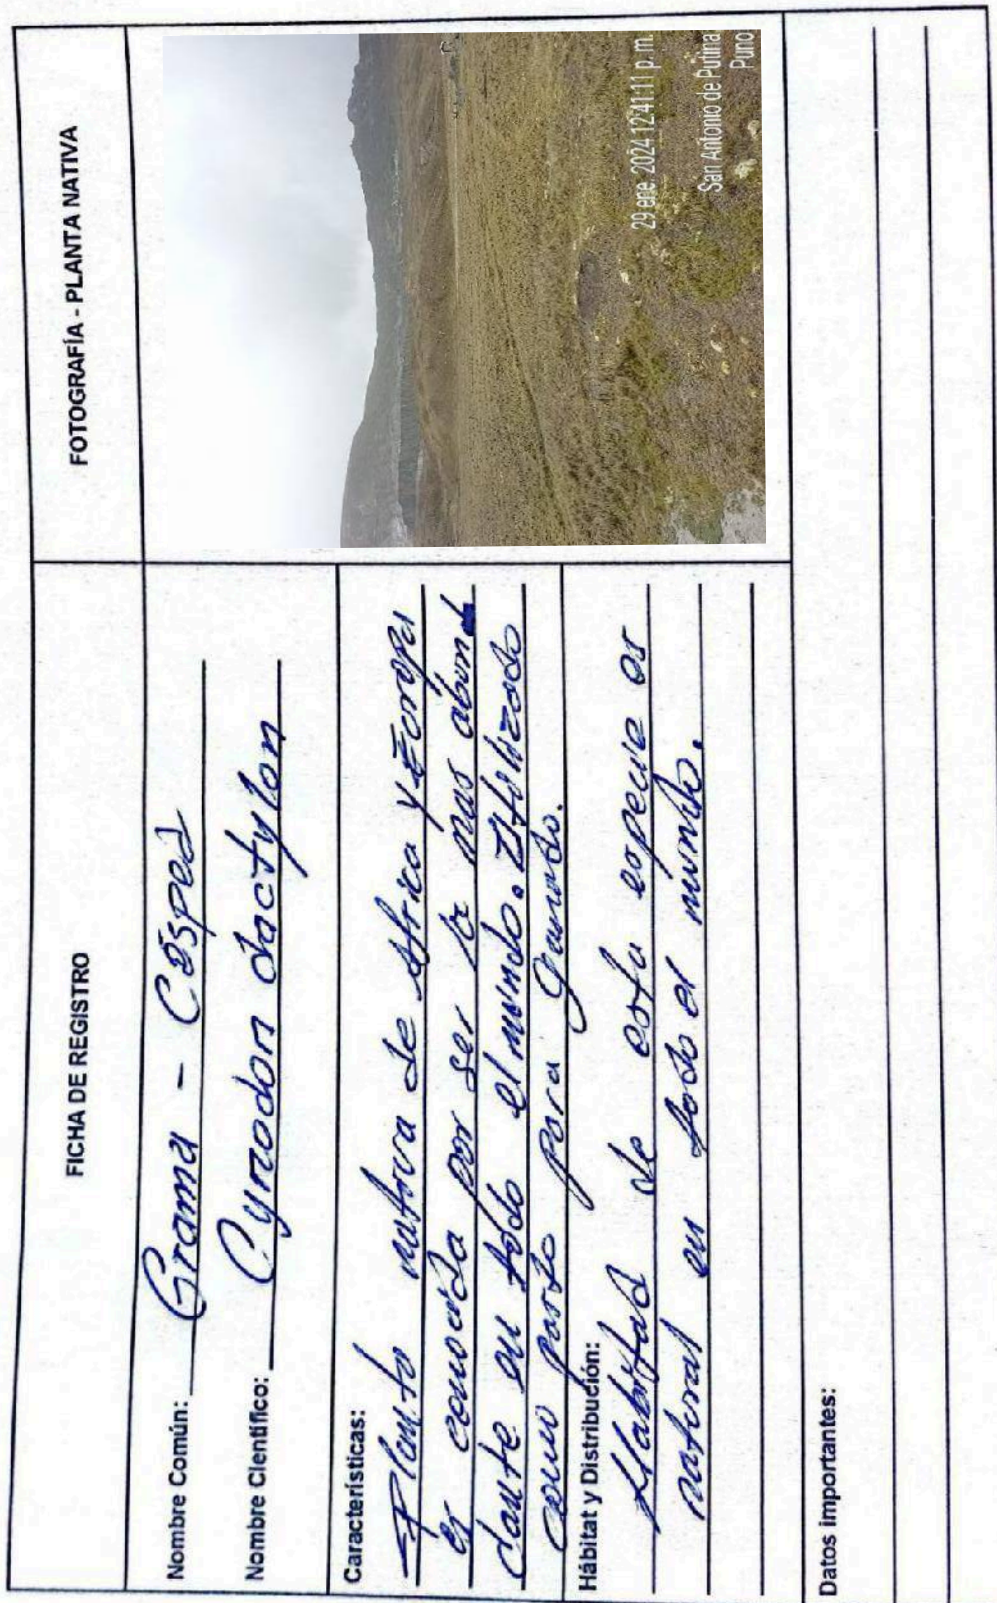 FICHA DE REGISTRO
FOTOGRAFÍA - PLANTA NATIVA
Nombre Común: Grama - Césped
Nombre Científico: Cynodon dactylon
Características:
Planta nativa de Africa y Europa
es conocida por ser la mas abun
dante en todo el mundo. Utilizado
como pasto para ganado.
Hábitat y Distribución:
Habittad de esta especie es
natural en todo el mundo.
Datos importantes:
29 ene. 2024 12:41:11 p. m.
San Antonio de Putina
Puno